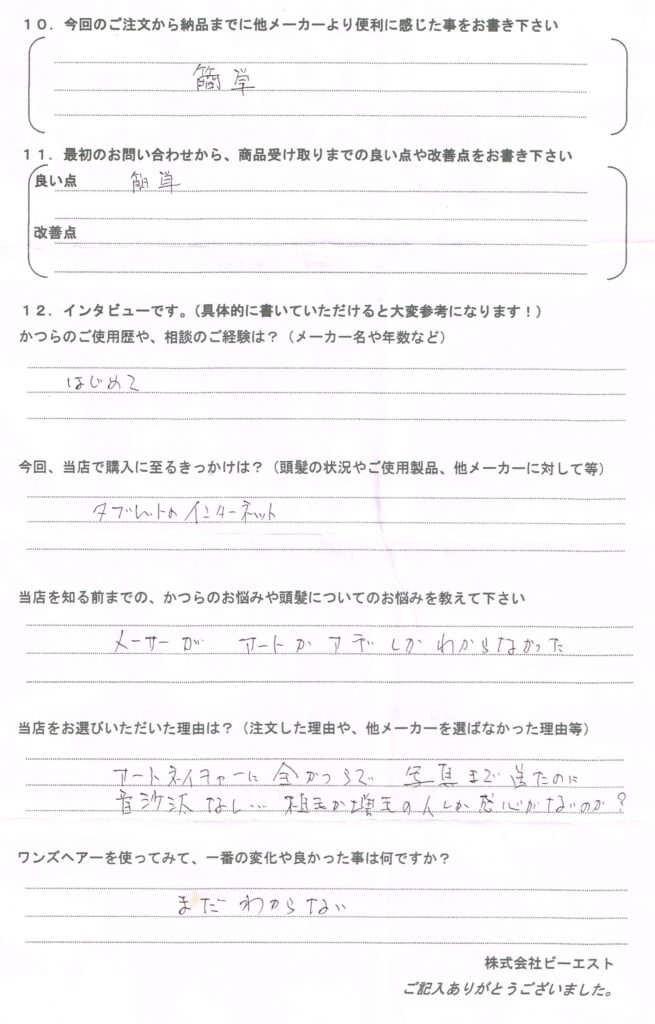 １０．今回のご注文から納品までに他メーカーより便利に感じた事をお書き下さい
簡単
１１．最初のお問い合わせから、商品受け取りまでの良い点や改善点をお書き下さい
良い点 簡単
改善点
１２．インタビューです。（具体的に書いていただけると大変参考になります！）
かつらのご使用歴や、相談のご経験は？（メーカー名や年数など）
はじめて
今回、当店で購入に至るきっかけは？（頭髪の状況やご使用製品、他メーカーに対して等）
タブレットのインターネット
当店を知る前までの、かつらのお悩みや頭髪についてのお悩みを教えて下さい
メーカーが アートか アデしか わからなかった
当店をお選びいただいた理由は？（注文した理由や、他メーカーを選ばなかった理由等）
アートネイチャーに 全かつらで 写真まで 送たのに
音沙汰なし… 植毛か増毛の人しか 感心がないのか？
ワンズヘアーを使ってみて、一番の変化や良かった事は何ですか？
まだ わからない
株式会社ビーエスト
ご記入ありがとうございました。